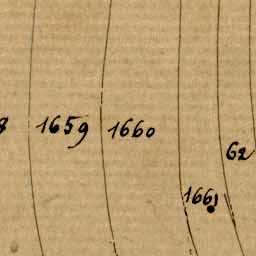 8 1659 1660
62
1661